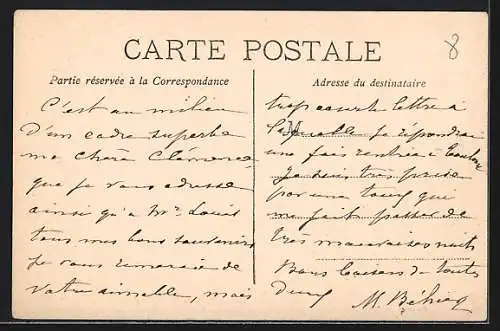 CARTE POSTALE
8
Partie réservée à la Correspondance
Adresse du destinataire
C'est au milieu
d'un cadre superbe
ma chère Clémence
que je vous adresse
ainsi qu'à Mr. Louis
tous mes bons souvenirs
Je vous remercie de
votre aimable, mais
trop courte lettre à
laquelle je répondrai
une fois rentrée à Toulon
Je suis très prise
par une toux qui
me fait passer de
très mauvaises nuits
Bons baisers de toutes
deux
M. Béhic